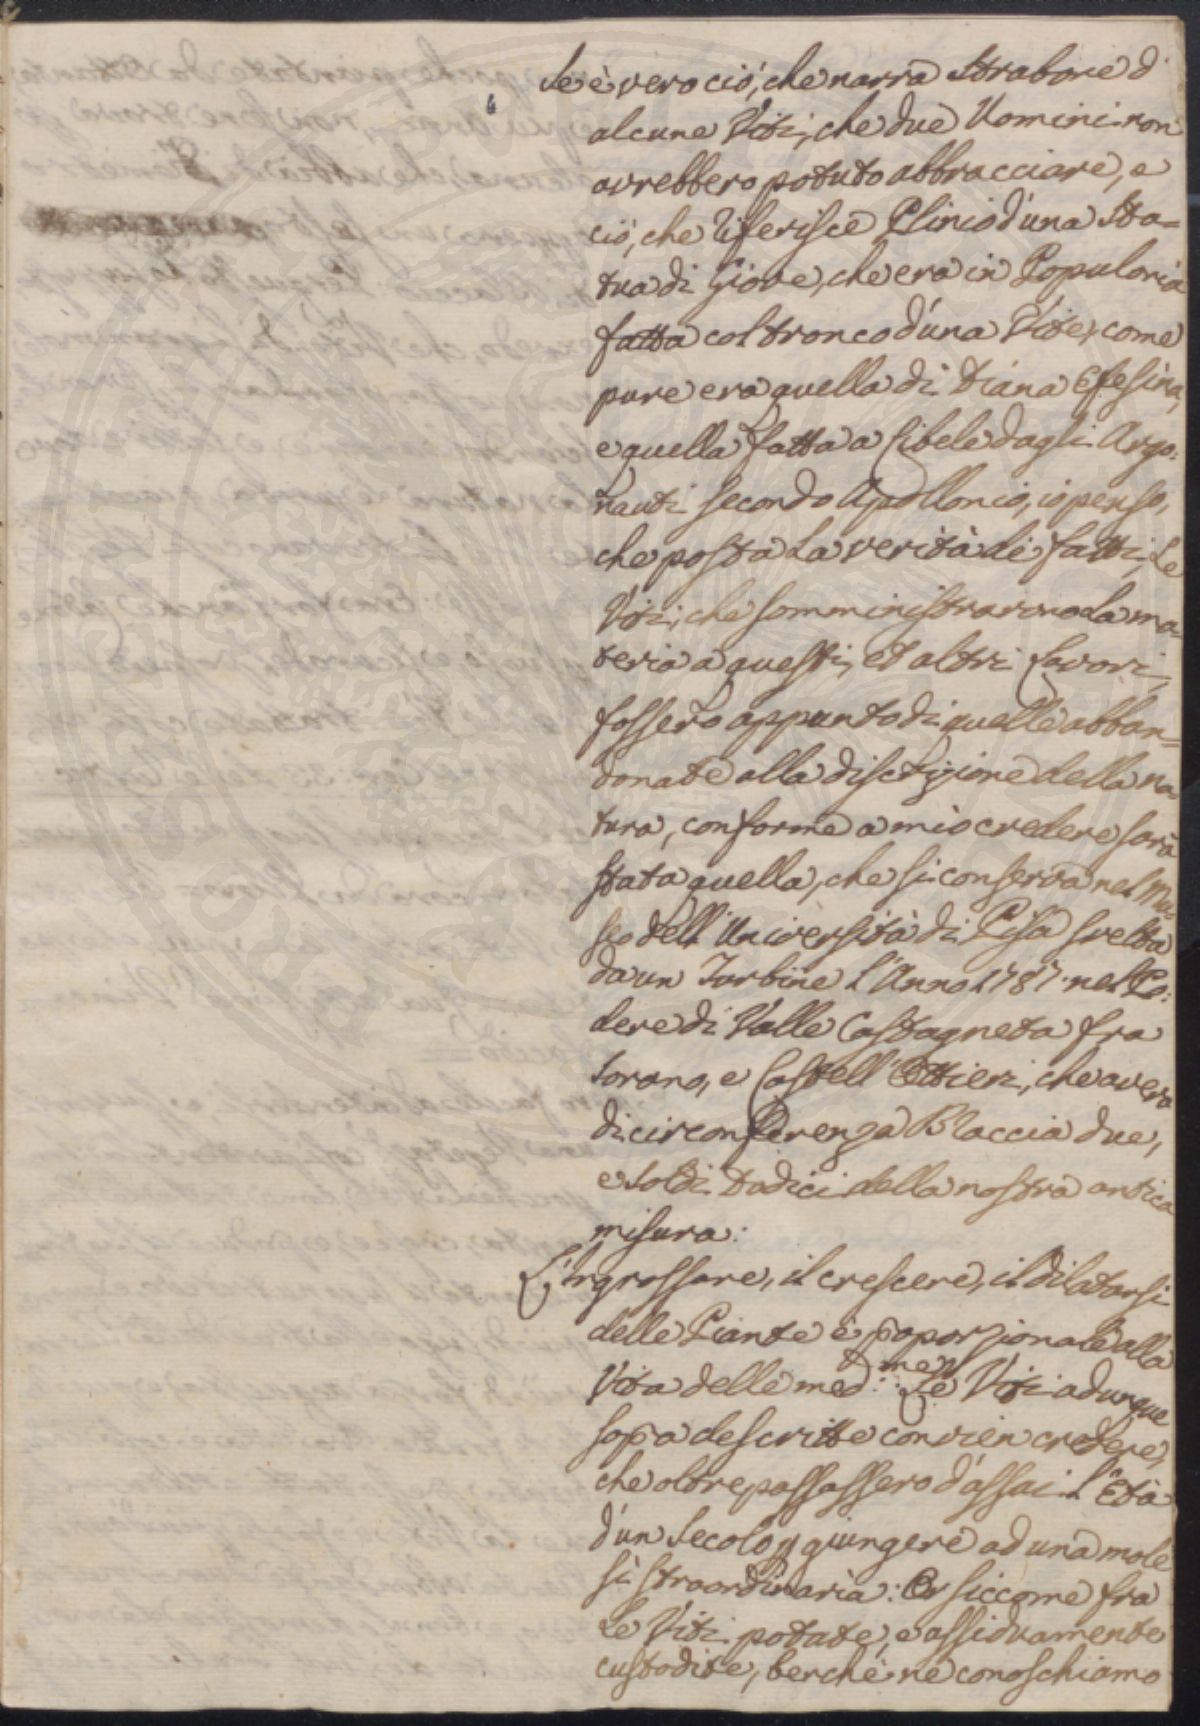 Se è vero ciò, che narra Strabone d'
alcune Viti, che due Uomini non
avrebbero potuto abbracciare, e
ciò, che riferisce Plinio d'una Sta=
tua di Giove, che era in Populonia
fatta col tronco d'una Vite, come
pure era quella di Diana Efesina,
e quella fatta a Cibele dagli Argo:
nauti secondo Apollonio, io penso,
che posta la verità de' fatti, le
Viti, che somministrarono la ma=
teria a questi, et altri Lavori,
fossero appunto di quelle abban=
donate alla discrezione della na=
tura, conforme a mio credere sarà
stata quella, che si conserva nel Mu=
seo dell'Università di Pisa svelta
da un Turbine l'Anno 1787. nel Po:
dere di Valle Castagneta fra
Sorano, e Castell'Ottieri, che aveva
di circonferenza Braccia due,
e soldi Dodici della nostra antica
misura:
L'Ingrossare, il crescere, il dilatarsi
delle Piante è p̃oporzionale alla
Vita delle med:me: Le Viti adunque
sop̃a descritte convien credere,
che oltrepassassero d'assai l'Età
d'un Secolo p giungere ad una mole
sì straordinaria: Or siccome fra
le Viti potate, e assiduamente
custodite, benchè ne conoschiamo